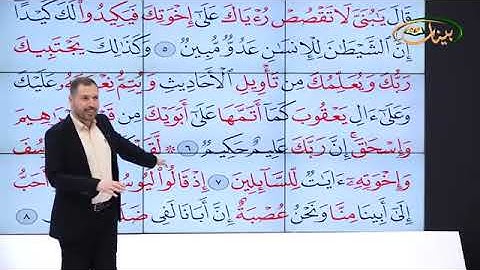 بينات
قَالَ يَٰبُنَىَّ لَا تَقْصُصْ رُءْيَاكَ عَلَىٰٓ إِخْوَتِكَ فَيَكِيدُوا۟ لَكَ كَيْدًا
إِنَّ ٱلشَّيْطَٰنَ لِلْإِنسَٰنِ عَدُوٌّ مُّبِينٌ ٥ وَكَذَٰلِكَ يَجْتَبِيكَ
رَبُّكَ وَيُعَلِّمُكَ مِن تَأْوِيلِ ٱلْأَحَادِيثِ وَيُتِمُّ نِعْمَتَهُۥ عَلَيْكَ
وَعَلَىٰٓ ءَالِ يَعْقُوبَ كَمَآ أَتَمَّهَا عَلَىٰٓ أَبَوَيْكَ مِن
وَإِسْحَٰقَ إِنَّ رَبَّكَ عَلِيمٌ حَكِيمٌ ٦
وَإِخْوَتِهِۦٓ ءَايَٰتٌ لِّلسَّآئِلِينَ ٧ إِذْ قَالُوا۟ لَيُوسُفُ أَحَبُّ
إِلَىٰٓ أَبِينَا مِنَّا وَنَحْنُ عُصْبَةٌ إِنَّ أَبَانَا لَفِى ٨